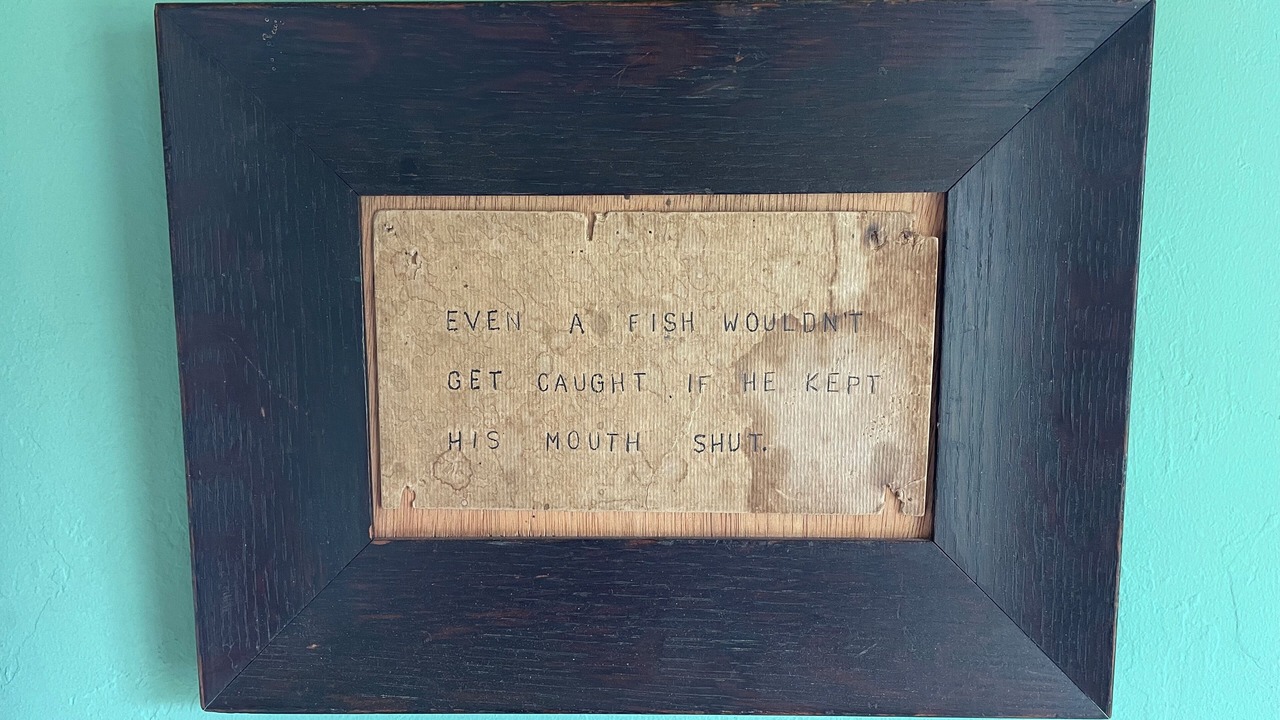 EVEN A FISH WOULDN'T
GET CAUGHT IF HE KEPT
HIS MOUTH SHUT.